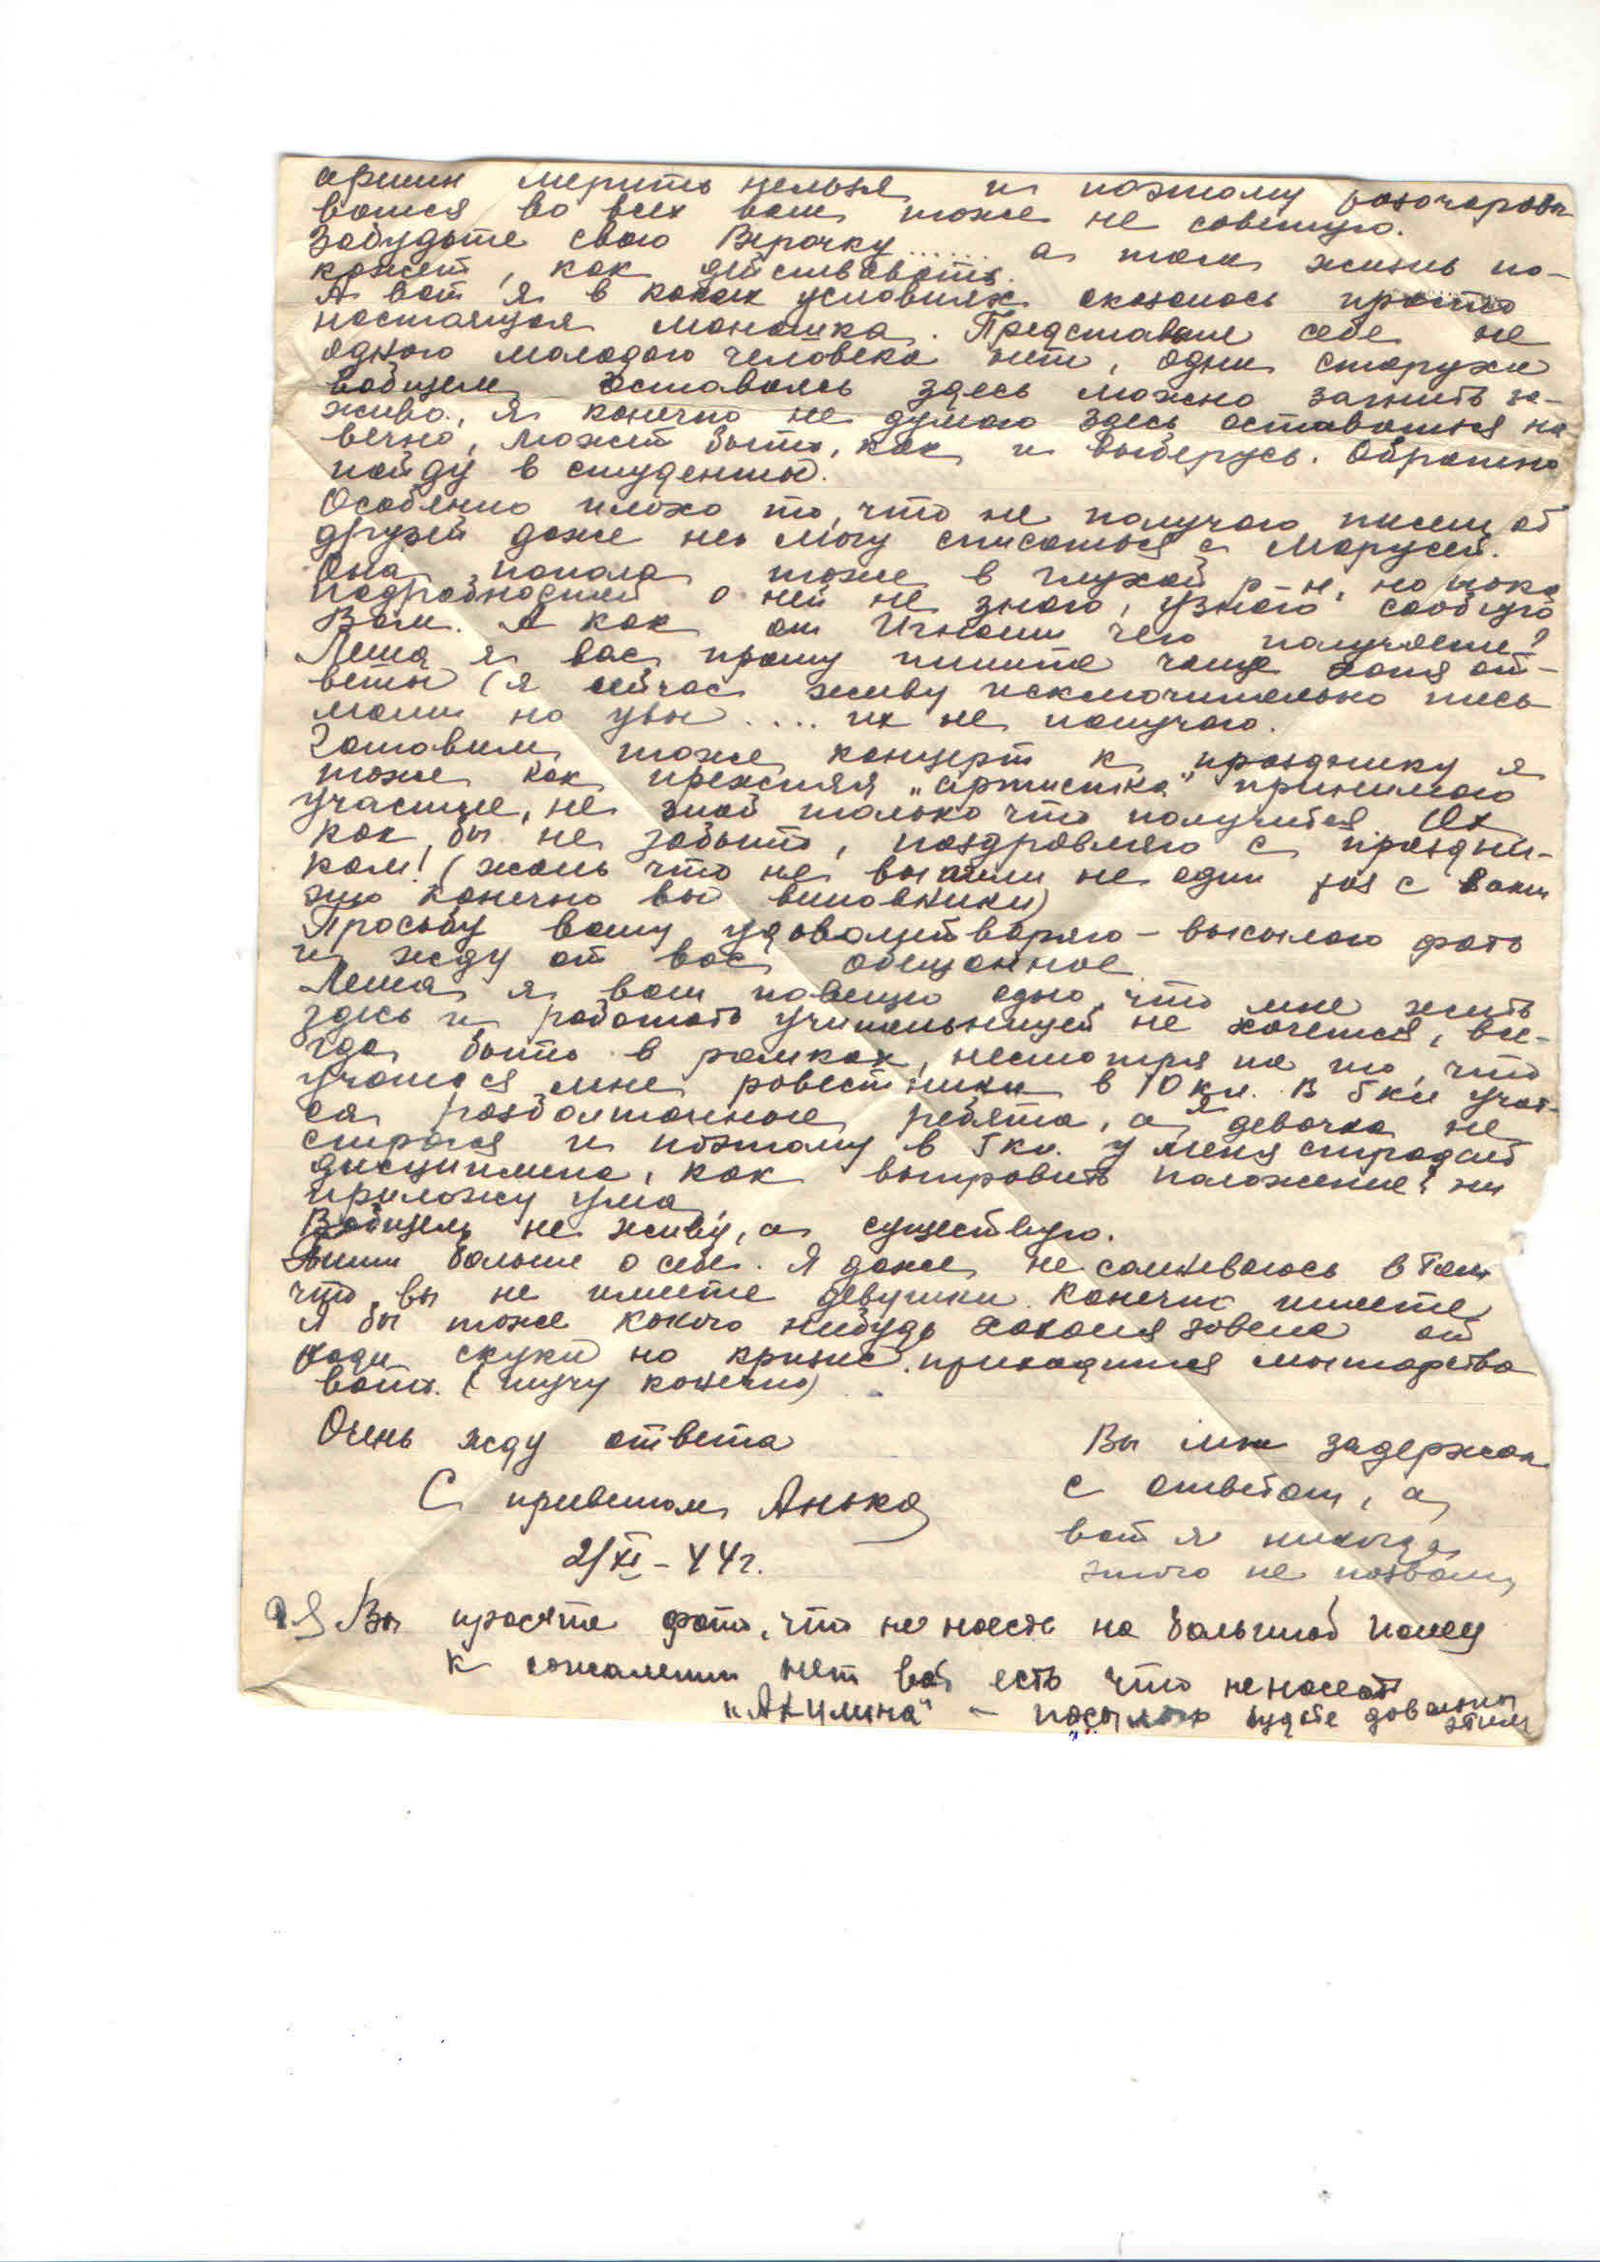 аршин мерить нельзя и поэтому разочаровы
ваться во всех вам тоже не советую.
Забудьте свою Верочку...... а там жизнь по-
кажет, как действовать.
А вот я в каких условиях оказалась просто
настоящая монашка. Представьте себе не
одного молодого человека нет, одни старухи
вобщем оставаясь здесь можно загнить за-
живо, я конечно не думаю здесь оставаться на
вечно, может быть, как и выберусь. Обратно
пойду в студенты.
Особенно плохо то, что не получаю писем от
друзей даже не могу списаться с Марусей.
Она попала тоже в глухой р-н, но пока
подробностей о ней не знаю, узнаю сообщу
Вам. А как от Игната чего получаете?
Леша я вас прошу пишите чаще хотя от-
веты (я сейчас живу исключительно пись
мами но увы .... их не получаю.
Готовим тоже концерт к празднику я
тоже как прежняя „артистка" принимаю
участие, не знаю только что получится Ох
как бы не забыть, поздравляю с праздни-
ком! (жаль что не выпили не один раз с вами
это конечно вы виновники)
Просьбу вашу удовалетваряю - высылаю фото
и жду от вас обещанное
Леша я вам повещю одно, что мне жить
здесь и работать учительницей не хочется, вс-
гда быть в рамках, несмотря на то, что
учатся мне ровестники в 10 кл. В 5 кл учат-
ся разболтанные ребята, а я девочка не
строгая и поэтому в 5 кл. у меня страдает
дисциплина, как выправить положение? ни
приложу ума
Вобщем не живу, а существую.
Пиши больше о себе. Я даже не сомневаюсь в том
что вы не имеете девушки. Конечно имеете
Я бы тоже какого нибудь хахаля завела от
ради скуки но кризис. приходится мытарство
вать. (шучу конечно)
Очень жду ответа
С приветом Анька
2/XI - 44 г.
Вы мне задержали
с ответом, а
вот я никогда
этого не позволю
Вы просите фото, что не ноготь на большой палец
к сожалении нет вот есть что не ноготь
"Акулина" - посылаю будьте довольны
этим